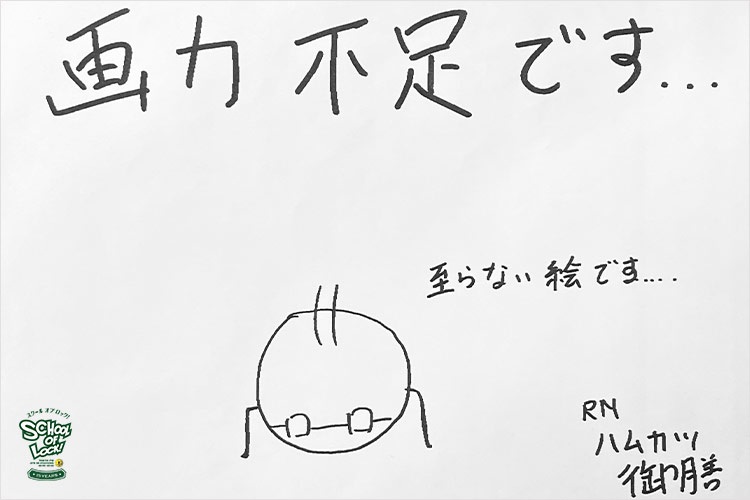 画力不足です...
至らない絵です....
RN
ハムカツ
御膳
スクール オブ ロック!
SCHOOL
OF
LOCK!